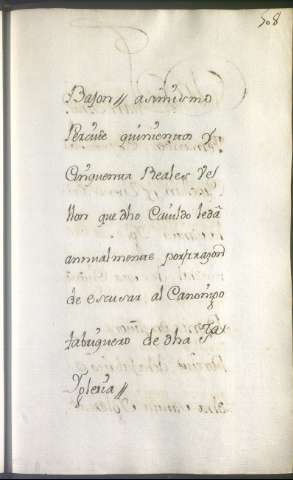 708
Bajon // asimismo
Perciue quinientos y
Cinquenta Reales Ve
llon que dho Cauildo le dà
annualmente por rrazon
de escusar al Canonigo
de dha Sta
Iglesia //